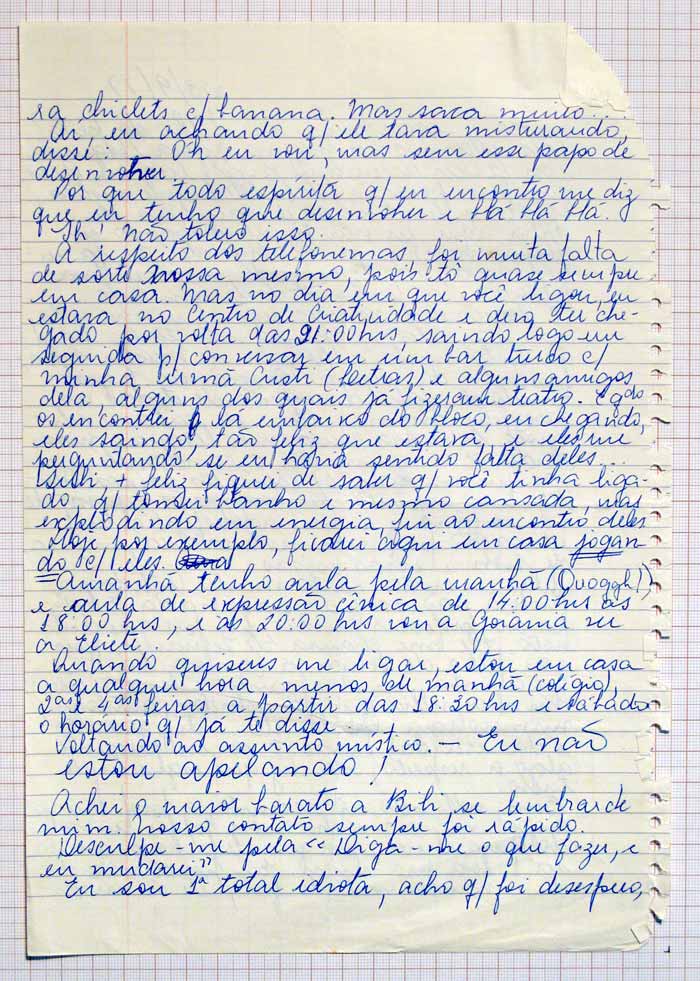 ra chiclets c/ banana. Mas saca muito...
Aí, eu achando q/ ele tava misturando,
disse: Oh eu vou, mas sem esse papo de
desenvolver.
Por que todo espírita q/ eu encontro me diz
que eu tenho que desenvolver e Há Há Há.
Ih! Não tolero isso.
A respeito dos telefonemas, foi muita falta
de sorte nossa mesmo, pois tô quase sempre
em casa. Mas no dia em que você ligou, eu
estava no Centro de Criatividade e devo ter che-
gado por volta das 21:00 hrs, saindo logo em
seguida p/ conversar em um bar turco c/
minha irmã Cristi (Letras) e alguns amigos
dela alguns dos quais já fizeram teatro. E qdo
os encontrei lá embaixo do bloco, eu chegando,
eles saindo, tão feliz que estava, e eles me
perguntando se eu havia sentido falta deles...
+ feliz fiquei de saber q/ você tinha liga-
do q/ tomei banho e mesmo cansada, mas
explodindo em energia, fui ao encontro deles
Hoje por exemplo, ficarei aqui em casa jogan
do c/ eles.
Amanhã tenho aula pela manhã (Quoggh!),
e aula de expressão cênica de 14:00 hrs às
18:00 hrs, e às 20:00 hrs vou a Goiânia ver
a Eliete.
Quando quiseres me ligar, estou em casa
a qualquer hora menos de manhã (colégio),
2as e 4as feiras a partir das 18:30 hrs e sábado
o horário q/ já te disse.
Voltando ao assunto místico. — Eu não
estou apelando!
Achei o maior barato a Bibi se lembrar de
mim. nosso contato sempre foi rápido.
Desculpe-me pela «Diga-me o que fazer, e
eu mudarei»
Eu sou 1ª total idiota, acho q/ foi desespero,